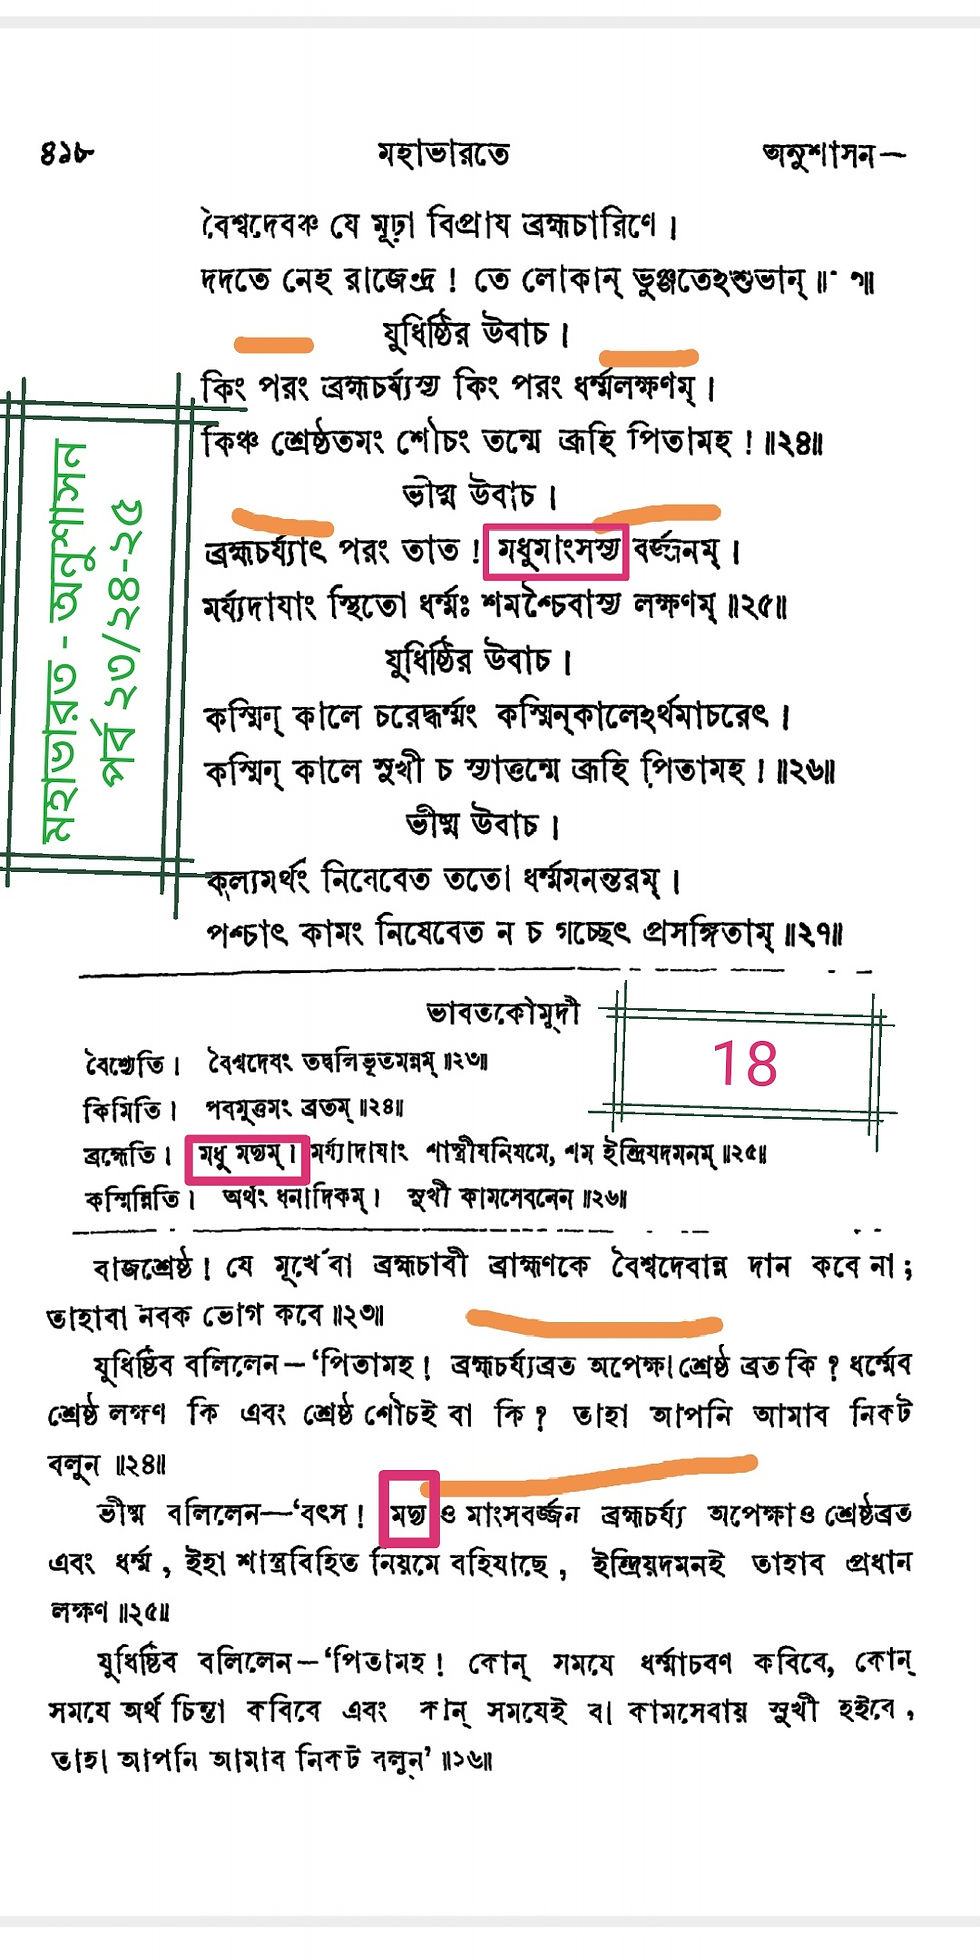 ৪১৮ মহাভারতে অনুশাসন—
বৈশ্বদেবঞ্চ যে মূঢ়া বিপ্রায ব্রহ্মচারিণে।
দদতে নেহ রাজেন্দ্র! তে লোকান্ ভুঞ্জতেঽশুভান্॥
যুধিষ্ঠির উবাচ।
কিং পরং ব্রহ্মচর্য্যস্য কিং পরং ধর্ম্মলক্ষণম্।
কিঞ্চ শ্রেষ্ঠতমং শৌচং তন্মে ব্রূহি পিতামহ!॥২৪॥
ভীষ্ম উবাচ।
ব্রহ্মচর্য্যাৎ পরং তাত! মধুমাংসস্য বর্জ্জনম্।
মর্য্যদাযাং স্থিতো ধর্ম্মঃ শমশ্চৈবাস্য লক্ষণম্॥২৫॥
যুধিষ্ঠির উবাচ।
কস্মিন্ কালে চরেদ্ধর্ম্মং কস্মিন্‌কালেঽর্থমাচরেৎ।
কস্মিন্ কালে সুখী চ স্যাত্তন্মে ব্রূহি পিতামহ!॥২৬॥
ভীষ্ম উবাচ।
কল্যমর্থং নিষেবেত ততো ধর্ম্মমনন্তরম্।
পশ্চাৎ কামং নিষেবেত ন চ গচ্ছেৎ প্রসঙ্গিতাম্॥২৭॥
মহাভারত - অনুশাসন
পর্ব ২৩/২৪-২৫
ভাবতকৌমুদী
18
বৈশ্বেতি। বৈশ্বদেবং তদ্বলিভূতমন্নম্॥২৩॥
কিমিতি। পবমুত্তমং ব্রতম্॥২৪॥
ব্রহ্মেতি। মধু মদ্যম্। মর্য্যাদাযাং শাস্ত্রীযনিযমে, শম ইন্দ্রিযদমনম্॥২৫॥
কস্মিন্নিতি। অর্থং ধনাদিকম্। সুখী কামসেবনেন॥২৬॥
বাজশ্রেষ্ঠ! যে মূর্খেবা ব্রহ্মচাবী ব্রাহ্মণকে বৈশ্বদেবান্ন দান কবে না;
তাহাবা নবক ভোগ কবে॥২৩॥
যুধিষ্ঠিব বলিলেন—‘পিতামহ! ব্রহ্মচর্য্যব্রত অপেক্ষা শ্রেষ্ঠ ব্রত কি? ধর্ম্মেব
শ্রেষ্ঠ লক্ষণ কি এবং শ্রেষ্ঠ শৌচই বা কি? তাহা আপনি আমাব নিকট
বলুন॥২৪॥
ভীষ্ম বলিলেন—‘বৎস! মদ্য ও মাংসবর্জ্জন ব্রহ্মচর্য্য অপেক্ষাও শ্রেষ্ঠব্রত
এবং ধর্ম্ম, ইহা শাস্ত্রবিহিত নিয়মে বহিযাছে, ইন্দ্রিয়দমনই তাহাব প্রধান
লক্ষণ॥২৫॥
যুধিষ্ঠিব বলিলেন—‘পিতামহ! কোন্ সমযে ধর্ম্মাচবণ কবিবে, কোন্
সমযে অর্থ চিন্তা কবিবে এবং কোন্ সমযেই বা কামসেবায় সুখী হইবে,
তাহা আপনি আমাব নিকট বলুন’॥২৬॥